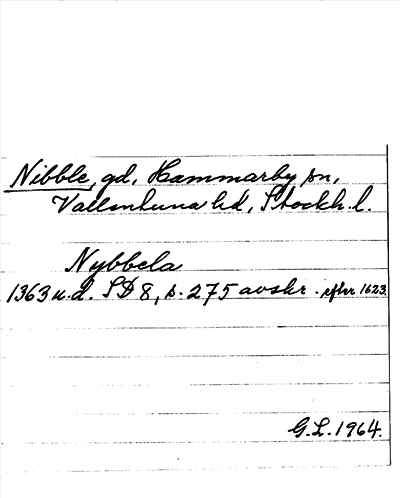 Nibble, gd, Hammarby sn,
Vallentuna hd, Stockh. l.
Nybbela
1363 u.d. SD 8, s. 275 avskr. efter 1623.
G.L. 1964.